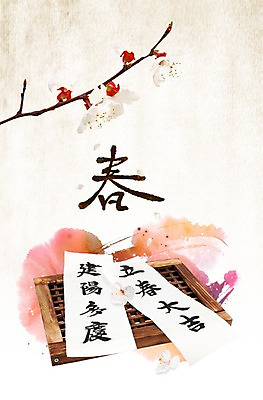 春
立春大吉
建陽多慶